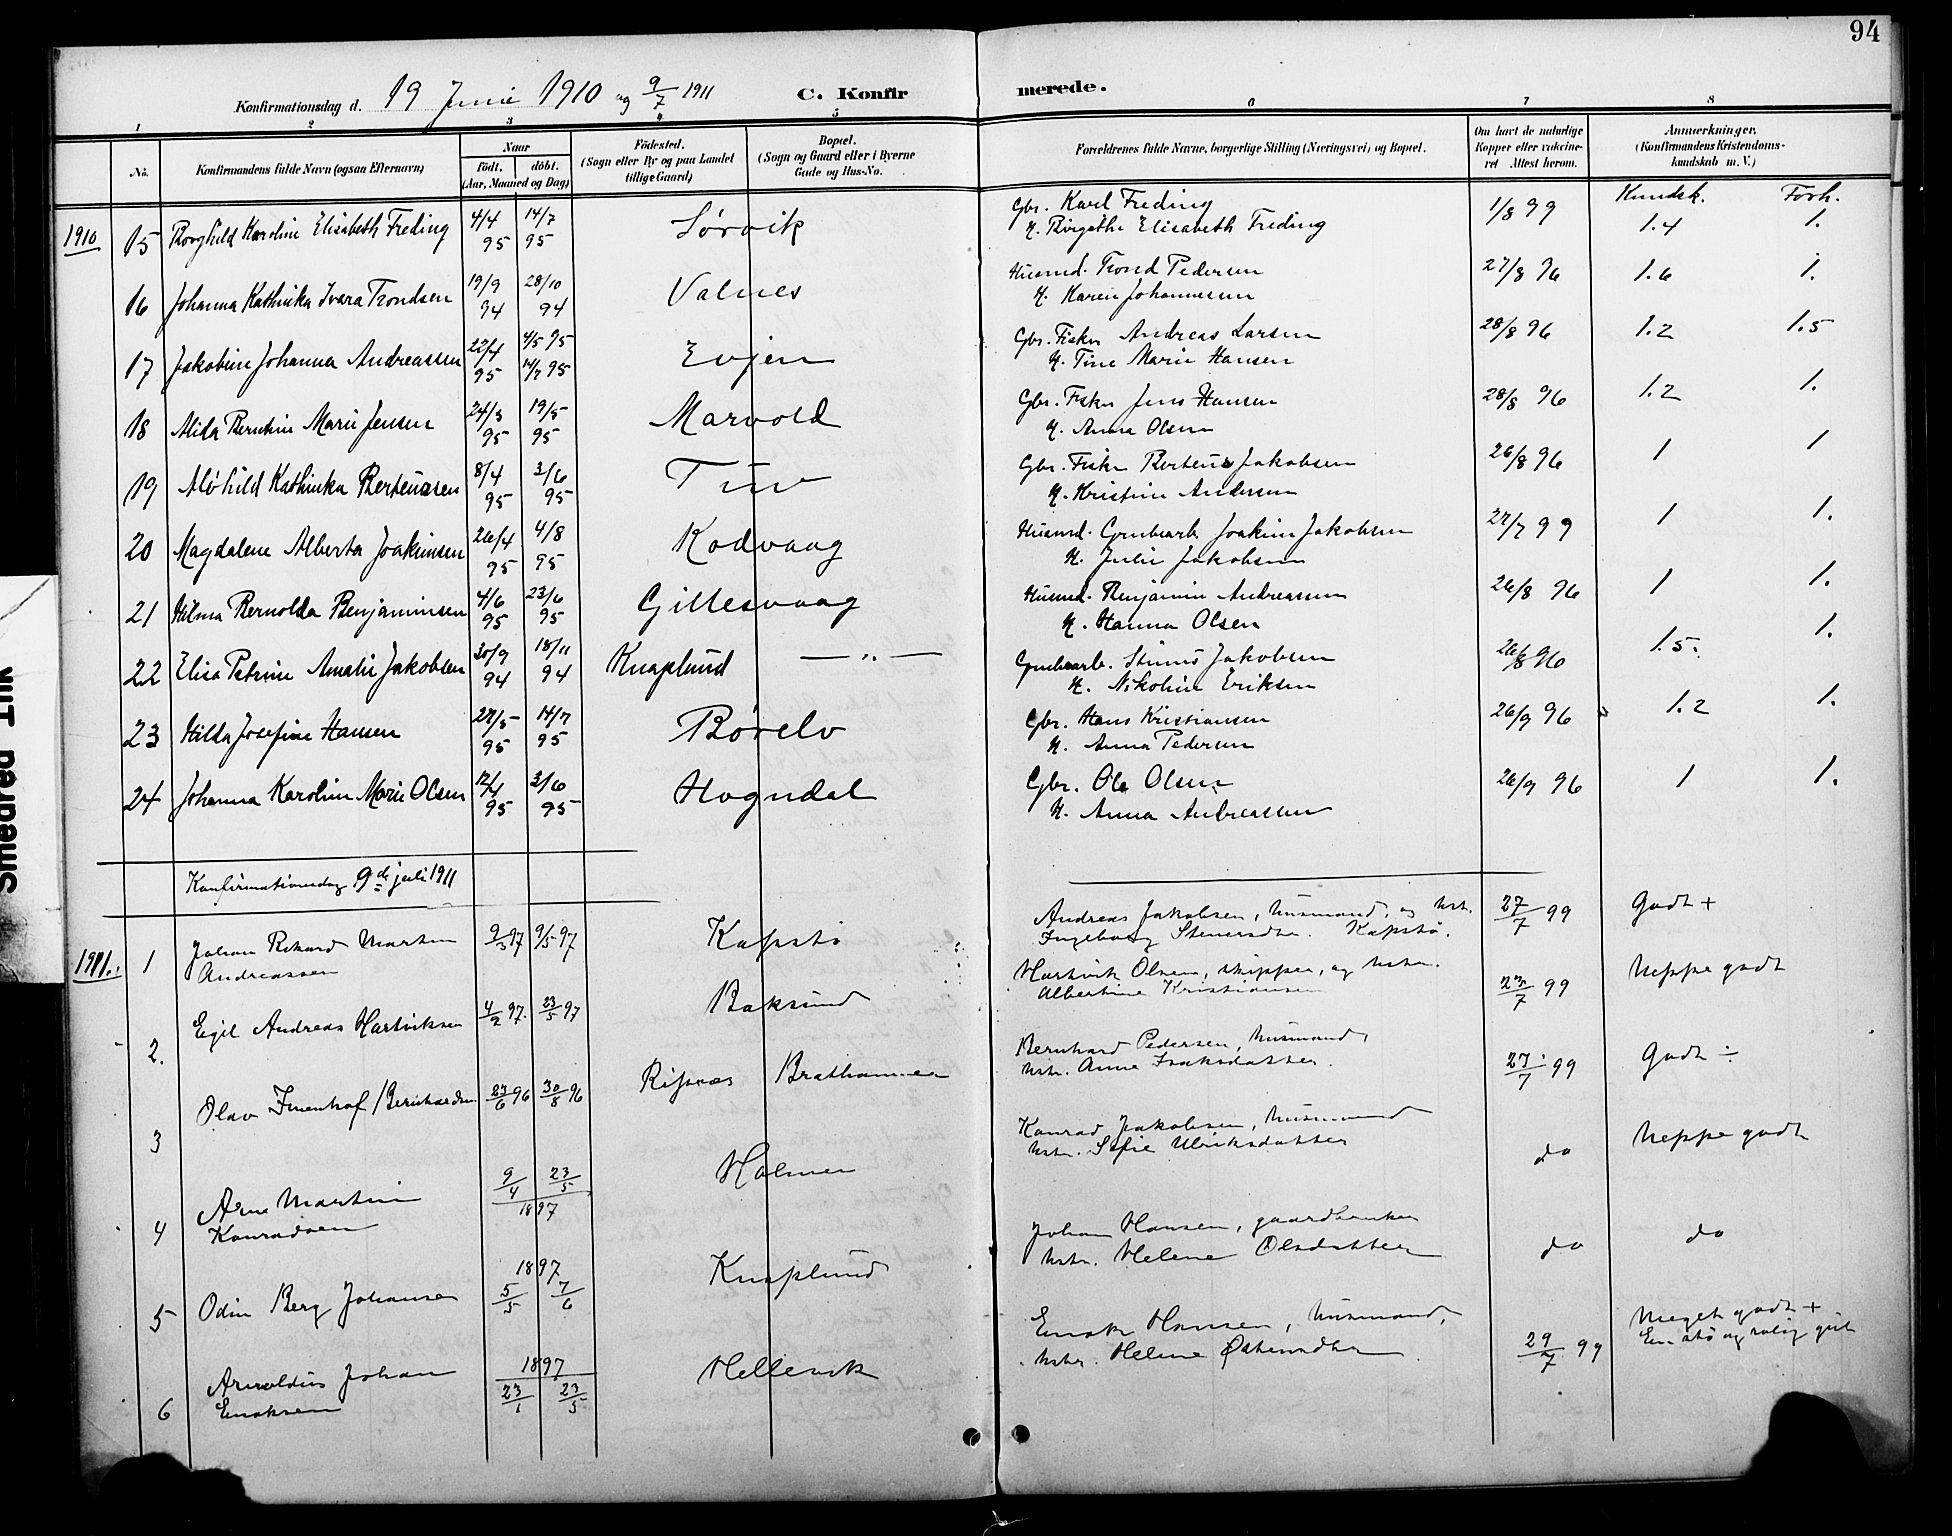 94
Konfirmationsdag d. 19 Junie 1910 og 9/7 1911 C. Konfirmerede.
1 2 3 4 5 6 7 8
No. Konfirmandens fulde Navn (ogsaa Efternavn) Naar födt. döbt. (Aar, Maaned og Dag) Födested. (Sogn eller By og paa Landet tillige Gaard) Bopæl. (Sogn og Gaard eller i Byerne Gade og Hus-No. Forældrenes fulde Navne, borgerlige Stilling (Næringsvei) og Bopæl. Om havt de naturlige Kopper eller vakcineret Attest herom. Anmærkninger. (Konfirmandens Kristendomskundskab m. V.)
Kundsk. Forh.
1910 15 Borghild Karoline Elisabeth Freding 4/4 95 14/7 95 Sørvik Gbr. Karl Freding H. Birgithe Elisabeth Freding 1/8 99 1.4 1.
16 Johanna Kathinka Ivara Trondsen 19/9 94 28/10 94 Valnes Husmd. Trond Pedersen H. Karen Johannesen 27/8 96 1.6 1.
17 Jakobine Johanna Andreassen 22/4 95 4/5 95 14/7 95 Evjen Gbr. Fisker Andreas Larsen H. Tine Marie Hansen 28/8 96 1.2 1.5
18 Alida Berntine Marie Jensen 24/3 95 19/5 95 Marvold Gbr. Fisker Jens Hansen H. Anna Olsen 28/8 96 1.2 1.
19 Aløhild Kathinka Berteussen 8/4 95 3/6 95 Tuv Gbr. Fisker Berteus Jakobsen H. Kristine Andersen 26/8 96 1 1
20 Magdalene Alberta Joakimsen 26/4 95 4/8 95 Kodvaag Husmd. Grubearb. Joakim Jakobsen H. Julie Jakobsen 27/7 99 1 1.
21 Hilma Bernolda Benjaminsen 4/6 95 23/6 95 Gillesvaag Husmd. Benjamin Andreassen H. Hanna Olsen 26/8 96 1 1.
22 Elisa Petrine Amalie Jakobsen 30/9 94 18/11 94 Knaplund — „ — Grubearb. Jakobsen H. Nikoline Eriksen 26/8 96 1.5. 1.
23 Hilda Josefine Hansen 27/5 95 14/7 95 Børelv Gbr. Hans Kristiansen H. Anna Pedersen 26/9 96 1.2 1.
24 Johanna Karoline Marie Olsen 12/4 95 3/6 95 Hogndal Gbr. Ole Olsen H. Anna Andreassen 26/9 96 1 1.
Konfirmationsdag 9de juli 1911
1911. 1 Johan Rikard Martin Andreassen 9/3 97 9/5 97 Kapstø Andreas Jakobsen, husmand, og hstr. Ingeborg Stenersdtr. Kapstø. 27/7 99 Godt +
2. Egil Andreas Hartviksen 4/2 97. 23/5 97 Baksund Hartvik Olsen, skipper, og hstr. Albertine Kristiansen 27/7 99 Neppe godt
3 Olav Bernhardsen 23/6 96 30/8 96 Ripnes Brathammer Bernhard Pedersen, husmand, hstr. Anne Isaksdatter. 27/7 99 Godt ÷
4 Arne Martin Konradsen 9/4 23/5 1897 Holmen Konrad Jakobsen, husmand hstr. Sofie Ulriksdatter do Neppe godt
5 Odin Berg Johansen 1897 5/5 7/6 Knaplund Johan Hansen, gaardbruker hstr. Helene Olsdatter do do
6 Arnoldus Johan Enoksen 1897 23/1 23/5 Hellevik Enok Hansen, husmand, hstr. Helene 29/7 99 Meget godt + En stø og rolig gut